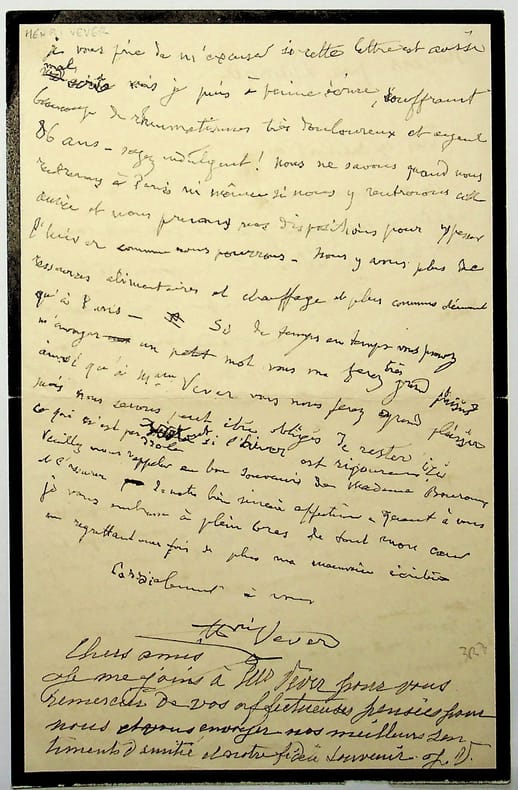 HENRI VEVER
je vous prie de m'excuser si cette lettre est aussi
mal écrite mais je puis à peine écrire, souffrant
beaucoup de rhumatismes très douloureux et ayant
86 ans - soyez indulgent! Nous ne savons quand nous
rentrerons à Paris ni même si nous y rentrerons cette
année et nous prenons nos dispositions pour y passer
l'hiver comme nous pourrons - Nous y avons plus de
ressources alimentaires et chauffage et plus
qu'à Paris - Si de temps en temps vous pouvez
m'envoyer un petit mot vous me ferez très grand plaisir
ainsi qu'à Mme Vever vous nous ferez grand plaisir
mais nous serons peut être obligés de rester ici
ce qui n'est pas si l'hiver est rigoureux
Veuillez nous rappeler au bon souvenir de Madame
et l'assurer de notre bien sincère affection quant à vous
je vous embrasse à plein bras de tout mon cœur
en regrettant une fois de plus ma mauvaise écriture
Cordialement à vous
Henri Vever
327
Chers amis
Je me joins à Mr Vever pour vous
remercier de vos affectueuses pensées pour
nous et vous envoyer nos meilleurs sen
timents d'amitié et notre fidèle souvenir